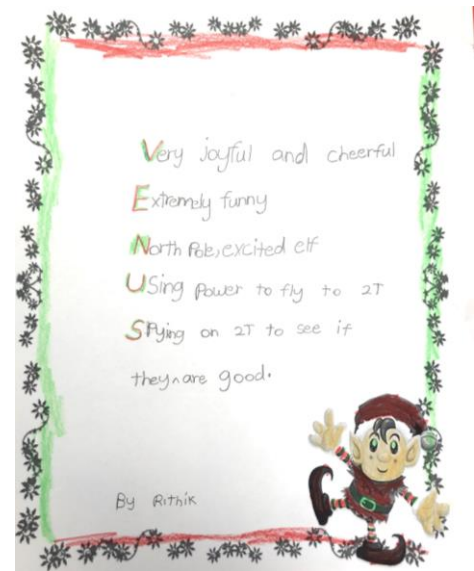 Very joyful and cheerful
Extremely funny
North Pole, excited elf
Using power to fly to 2T
Spying on 2T to see if
they^are good.
By Rithik